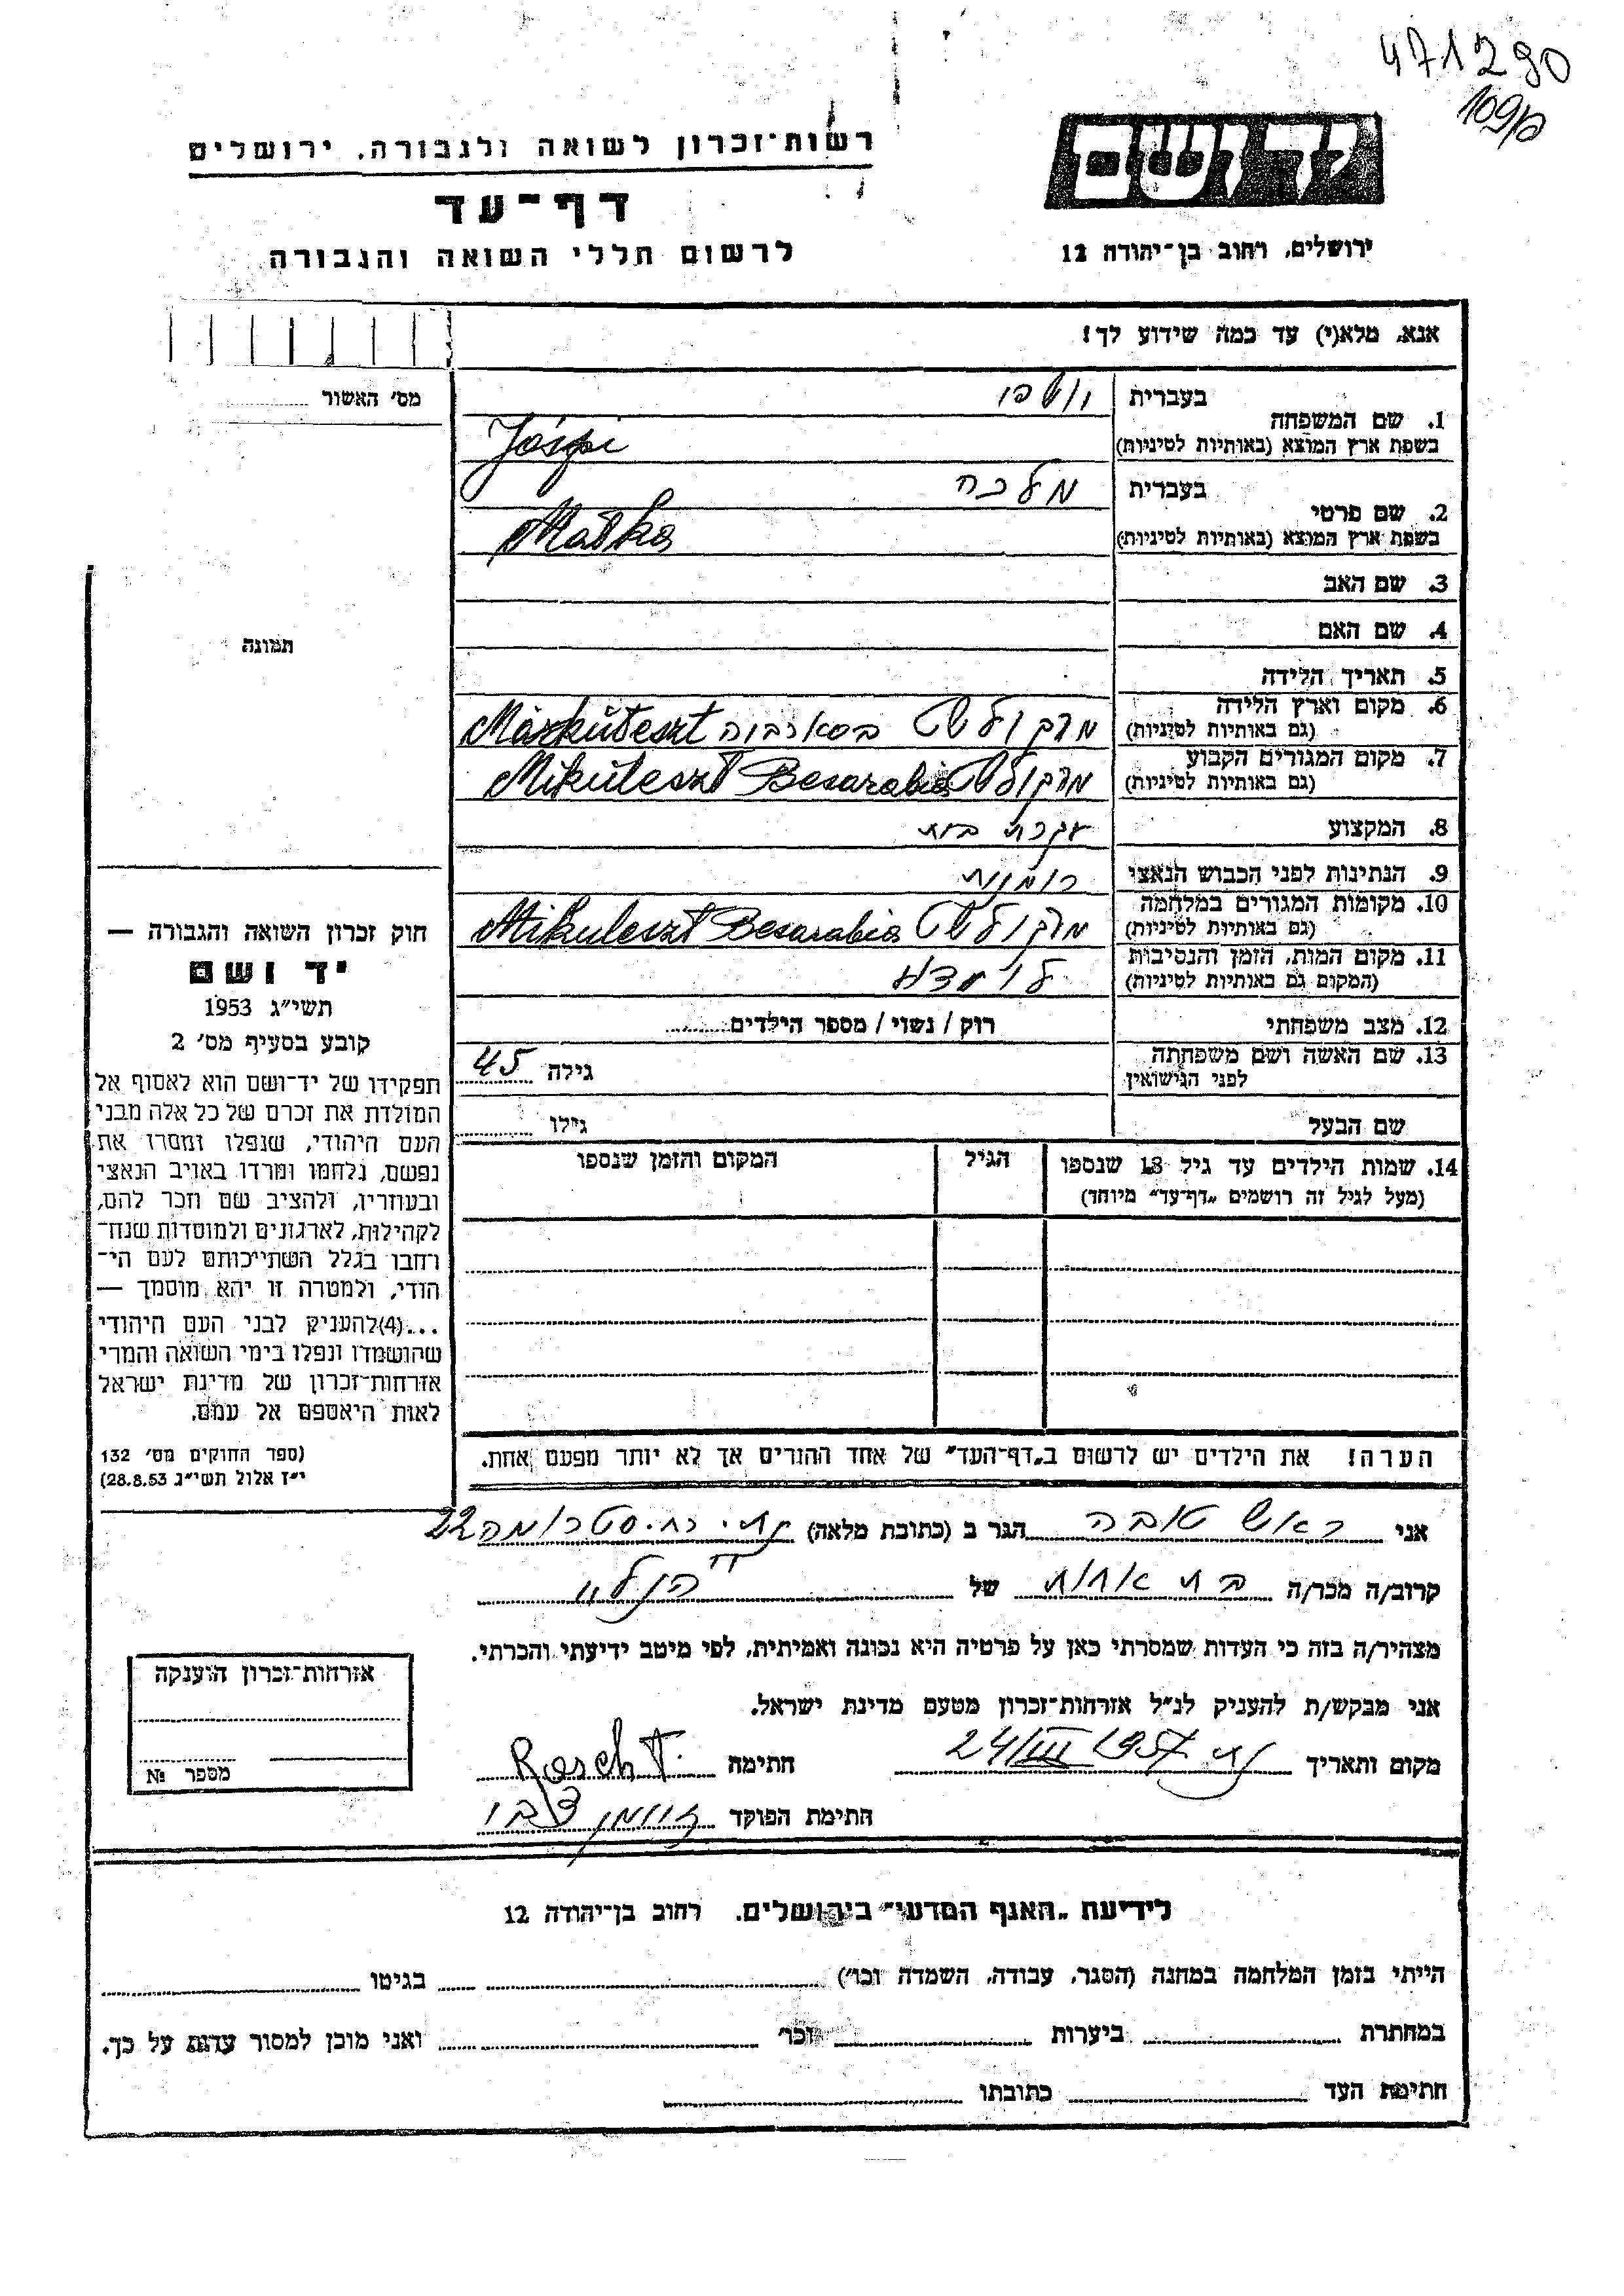 471290
109/פ
יד ושם
רשות־זכרון לשואה ולגבורה, ירושלים
דף־עד
לרשום חללי השואה והגבורה
ירושלים, רחוב בן־יהודה 12
אנא, מלא(י) עד כמה שידוע לך!
מס׳ האשור
1. שם המשפחה בעברית
בשפת ארץ המוצא (באותיות לטיניות) Jószpi
2. שם פרטי בעברית מלכה
בשפת ארץ המוצא (באותיות לטיניות) Malka
3. שם האב
4. שם האם
תמונה
5. תאריך הלידה
6. מקום וארץ הלידה (גם באותיות לטיניות) מרקולשט בסארביה Márkuleszt
7. מקום המגורים הקבוע (גם באותיות לטיניות) מרקולשט Mikuleszt Besarabia
8. המקצוע עקרת בית
9. הנתינות לפני הכבוש הנאצי רומנית
10. מקומות המגורים במלחמה (גם באותיות לטיניות) מרקולשט Mikuleszt Besarabia
11. מקום המות, הזמן והנסיבות (המקום גם באותיות לטיניות) לו ידוע
12. מצב משפחתי רוק / נשוי / מספר הילדים
13. שם האשה ושם משפחתה לפני הנישואין גילה 45
שם הבעל גילו
14. שמות הילדים עד גיל 18 שנספו הגיל המקום והזמן שנספו
(מעל לגיל זה רושמים „דף־עד״ מיוחד)
חוק זכרון השואה והגבורה —
יד ושם
תשי״ג 1953
קובע בסעיף מס׳ 2
תפקידו של יד־ושם הוא לאסוף אל
המולדת את זכרם של כל אלה מבני
העם היהודי, שנפלו ומסרו את
נפשם, נלחמו ומרדו באויב הנאצי
ובעוזריו, ולהציב שם וזכר להם,
לקהילות, לארגונים ולמוסדות שנח־
רחבו בגלל השתייכותם לעם הי־
הודי, ולמטרה זו יהא מוסמך —
...(4)להעניק לבני העם היהודי
שהושמדו ונפלו בימי השואה והמרי
אזרחות־זכרון של מדינת ישראל
לאות היאספם אל עמם.
(ספר החוקים מס׳ 132
י״ז אלול תשי״ג 28.8.53)
הערה! את הילדים יש לרשום ב„דף־העד״ של אחד ההורים אך לא יותר מפעם אחת.
אני ראש טובה הגר ב (כתובת מלאה) רח׳ סטרומה 22
קרוב/ה מכר/ה בת אחות של הנ״ל
מצהיר/ה בזה כי העדות שמסרתי כאן על פרטיה היא נכונה ואמיתית, לפי מיטב ידיעתי והכרתי.
אני מבקש/ת להעניק לנ״ל אזרחות־זכרון מטעם מדינת ישראל.
מקום ותאריך 24/III 1957 חתימה Rosch T.
חתימת הפוקד
אזרחות־זכרון הוענקה
מספר №
לידיעת „האגף המדעי״ בירושלים, רחוב בן־יהודה 12
הייתי בזמן המלחמה במחנה (הסגר, עבודה, השמדה וכו׳) בגיטו
במחתרת ביערות וכו׳ ואני מוכן למסור עדות על כך.
חתימת העד כתובתו